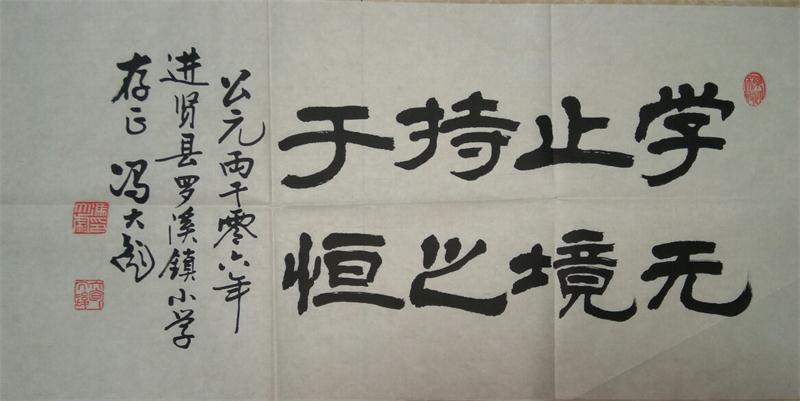 学无
止境
持之
于恒
公元两千零六年
进贤县罗溪鎮小学
存正 冯大彪